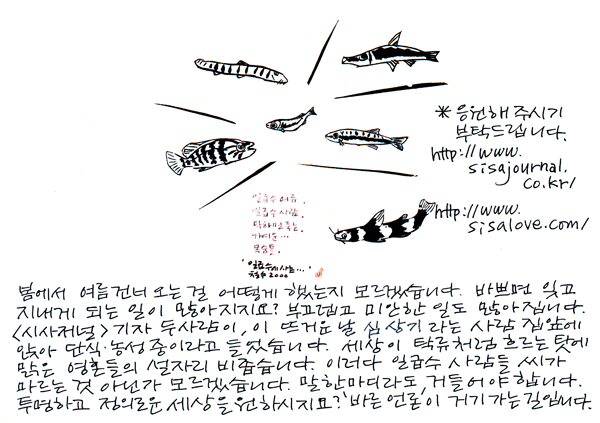 * 응원해 주시기
부탁드립니다.
http://www.
sisajournal.
co.kr/
http://www.
sisalove.com/
일급수 어류.
일급수 사람.
탁하면 죽는.
가여운...
목숨들.
'일급수세상은...'
철수 2000
봄에서 여름 건너 오는 걸 어떻게 했는지 모르겠습니다. 바쁘면 잊고
지내게 되는 일이 많아지지요? 부끄럽고 미안한 일도 많아집니다.
<시사저널> 기자 두사람이, 이 뜨거운 날 심상기 라는 사람 집앞에
앉아 단식·농성 중이라고 들었습니다. 세상이 탁류처럼 흐르는 탓에
맑은 영혼들의 설자리 비좁습니다. 이러다 일급수 사람들 씨가
마르는 것 아닌가 모르겠습니다. 말 한마디라도, 거들어야 합니다.
투명하고 정의로운 세상을 원하시지요? '바른 언론'이 거기 가는 길입니다.